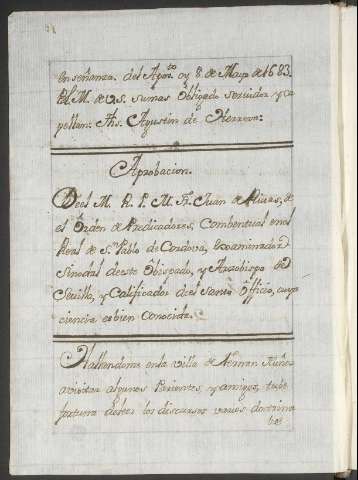 enseñanza del Agos.to oy 8 de Mayo de 1683.
Bl. M. de V.S. su mas Obligado servidor y Ca
pellan: Fr. Agustin de Herrera:
Aprobacion.
Deel M. R. P. M. Fr. Juan de Rivas, de
el Orden de Predicadores, Combentual en el
Real de S.n Pablo de Cordova, Examinador
Sinodal de este Obispado, y Arzobispo de
Sevilla, y Calificador de el Santo Officio, cuya
ciencia es bien Conocida.
Hallendome en la villa de Fernan Nuñez
a visitar algunos Parientes, y amigos, tube
fortuna de leer los discursos varios doctrina
les